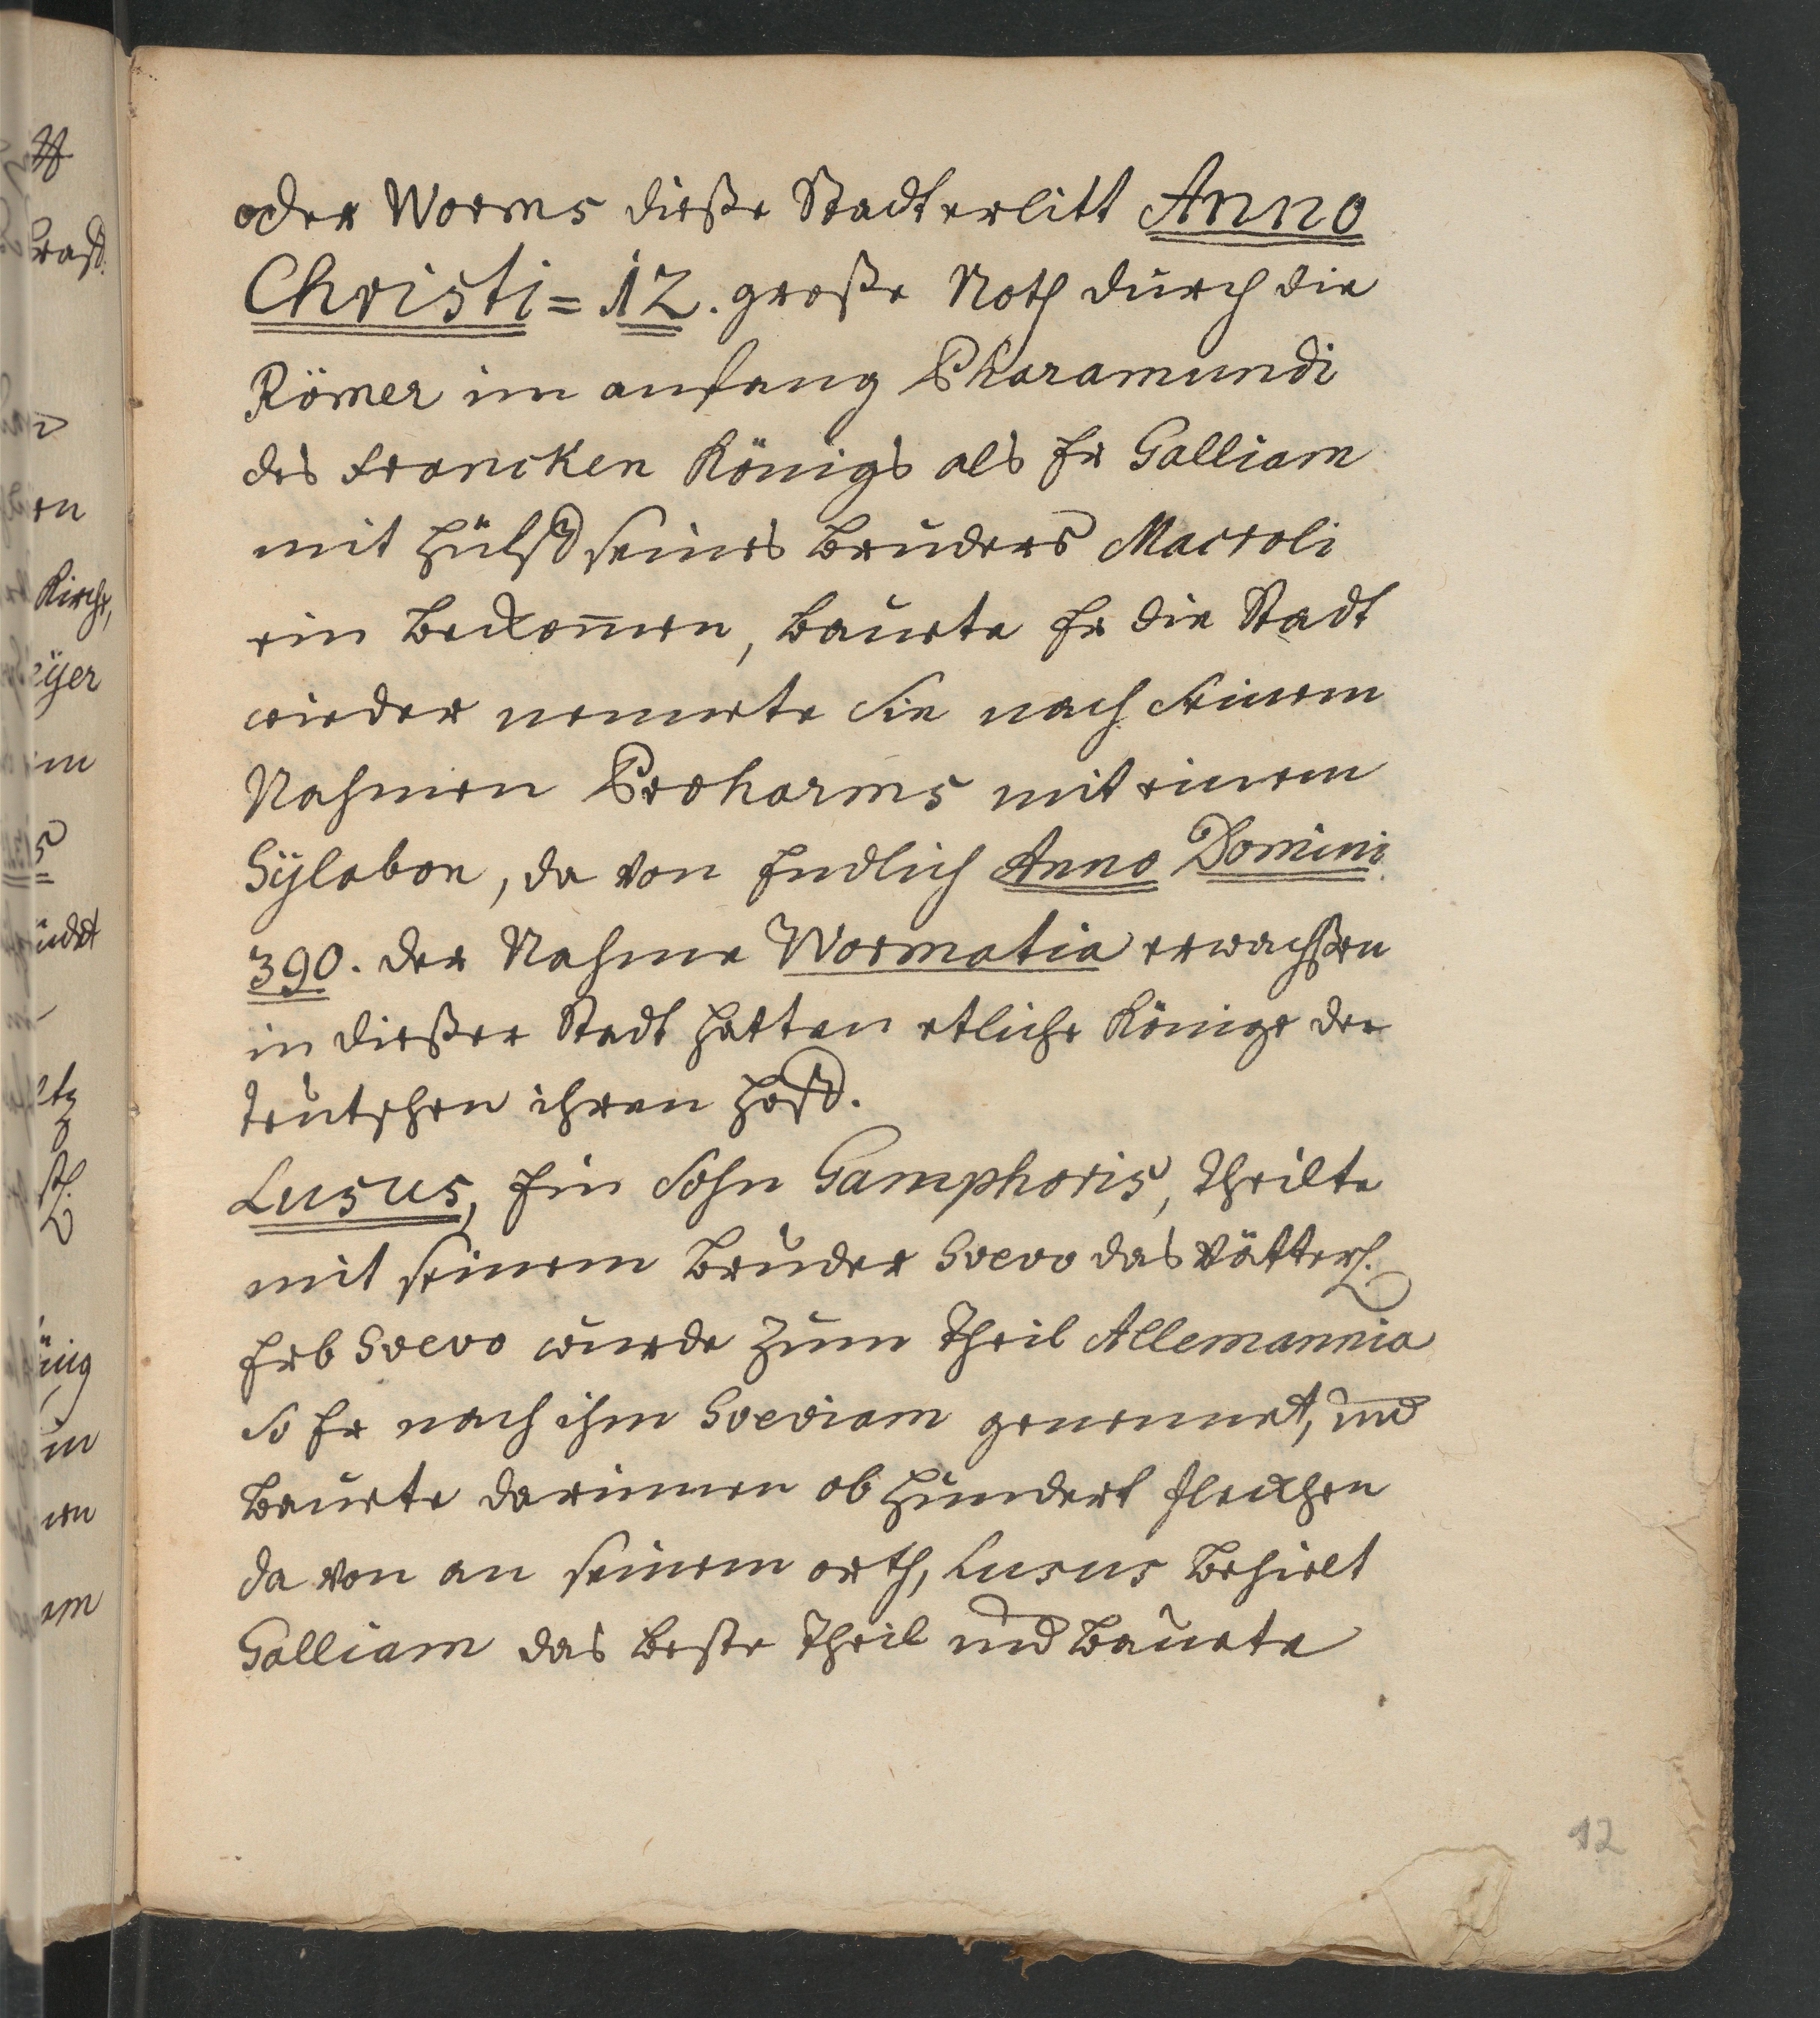 oder Worms dieße Stadt erlitt Anno
Christi = 12. große Noth durch die
Römer im anfang Pharamundi
des Francken Königs als Er Galliam
mit Hülff seines Bruders Macroli
ein Bekom̅en, Bauete Er die Stadt
wieder nennete Sie nach Seinem
Nahmen Proharms mit einem
Sÿlaben, da von Endlich Anno Domini
390. der Nahme Wormatia erwachßen
in dießer Stadt hatten etliche Könige der
teutschen ihren Hoff.
Lusus, Ein Sohn Gamphoris, theilte
mit seinem Bruder Svevo das Vätterl.
Erb Svevo wurde zum theil Allemannia
So Er nach ihm Sveviam genennet, und
Bauete darinnen ob hundert flecken
da von an seinem orth, Lusus Behielt
Galliam das Beste theil und Bauete
12